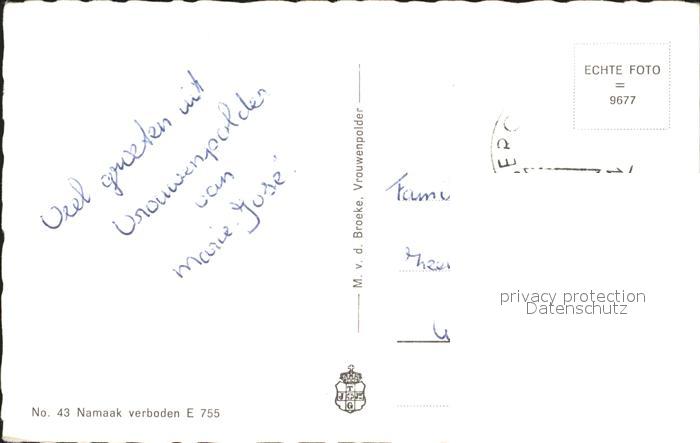 Veel groeten uit
Vrouwenpolder
van
Marie-José!
M. v. d. Broeke, Vrouwenpolder
ECHTE FOTO
=
9677
Fami
privacy protection
Datenschutz
No. 43 Namaak verboden E 755